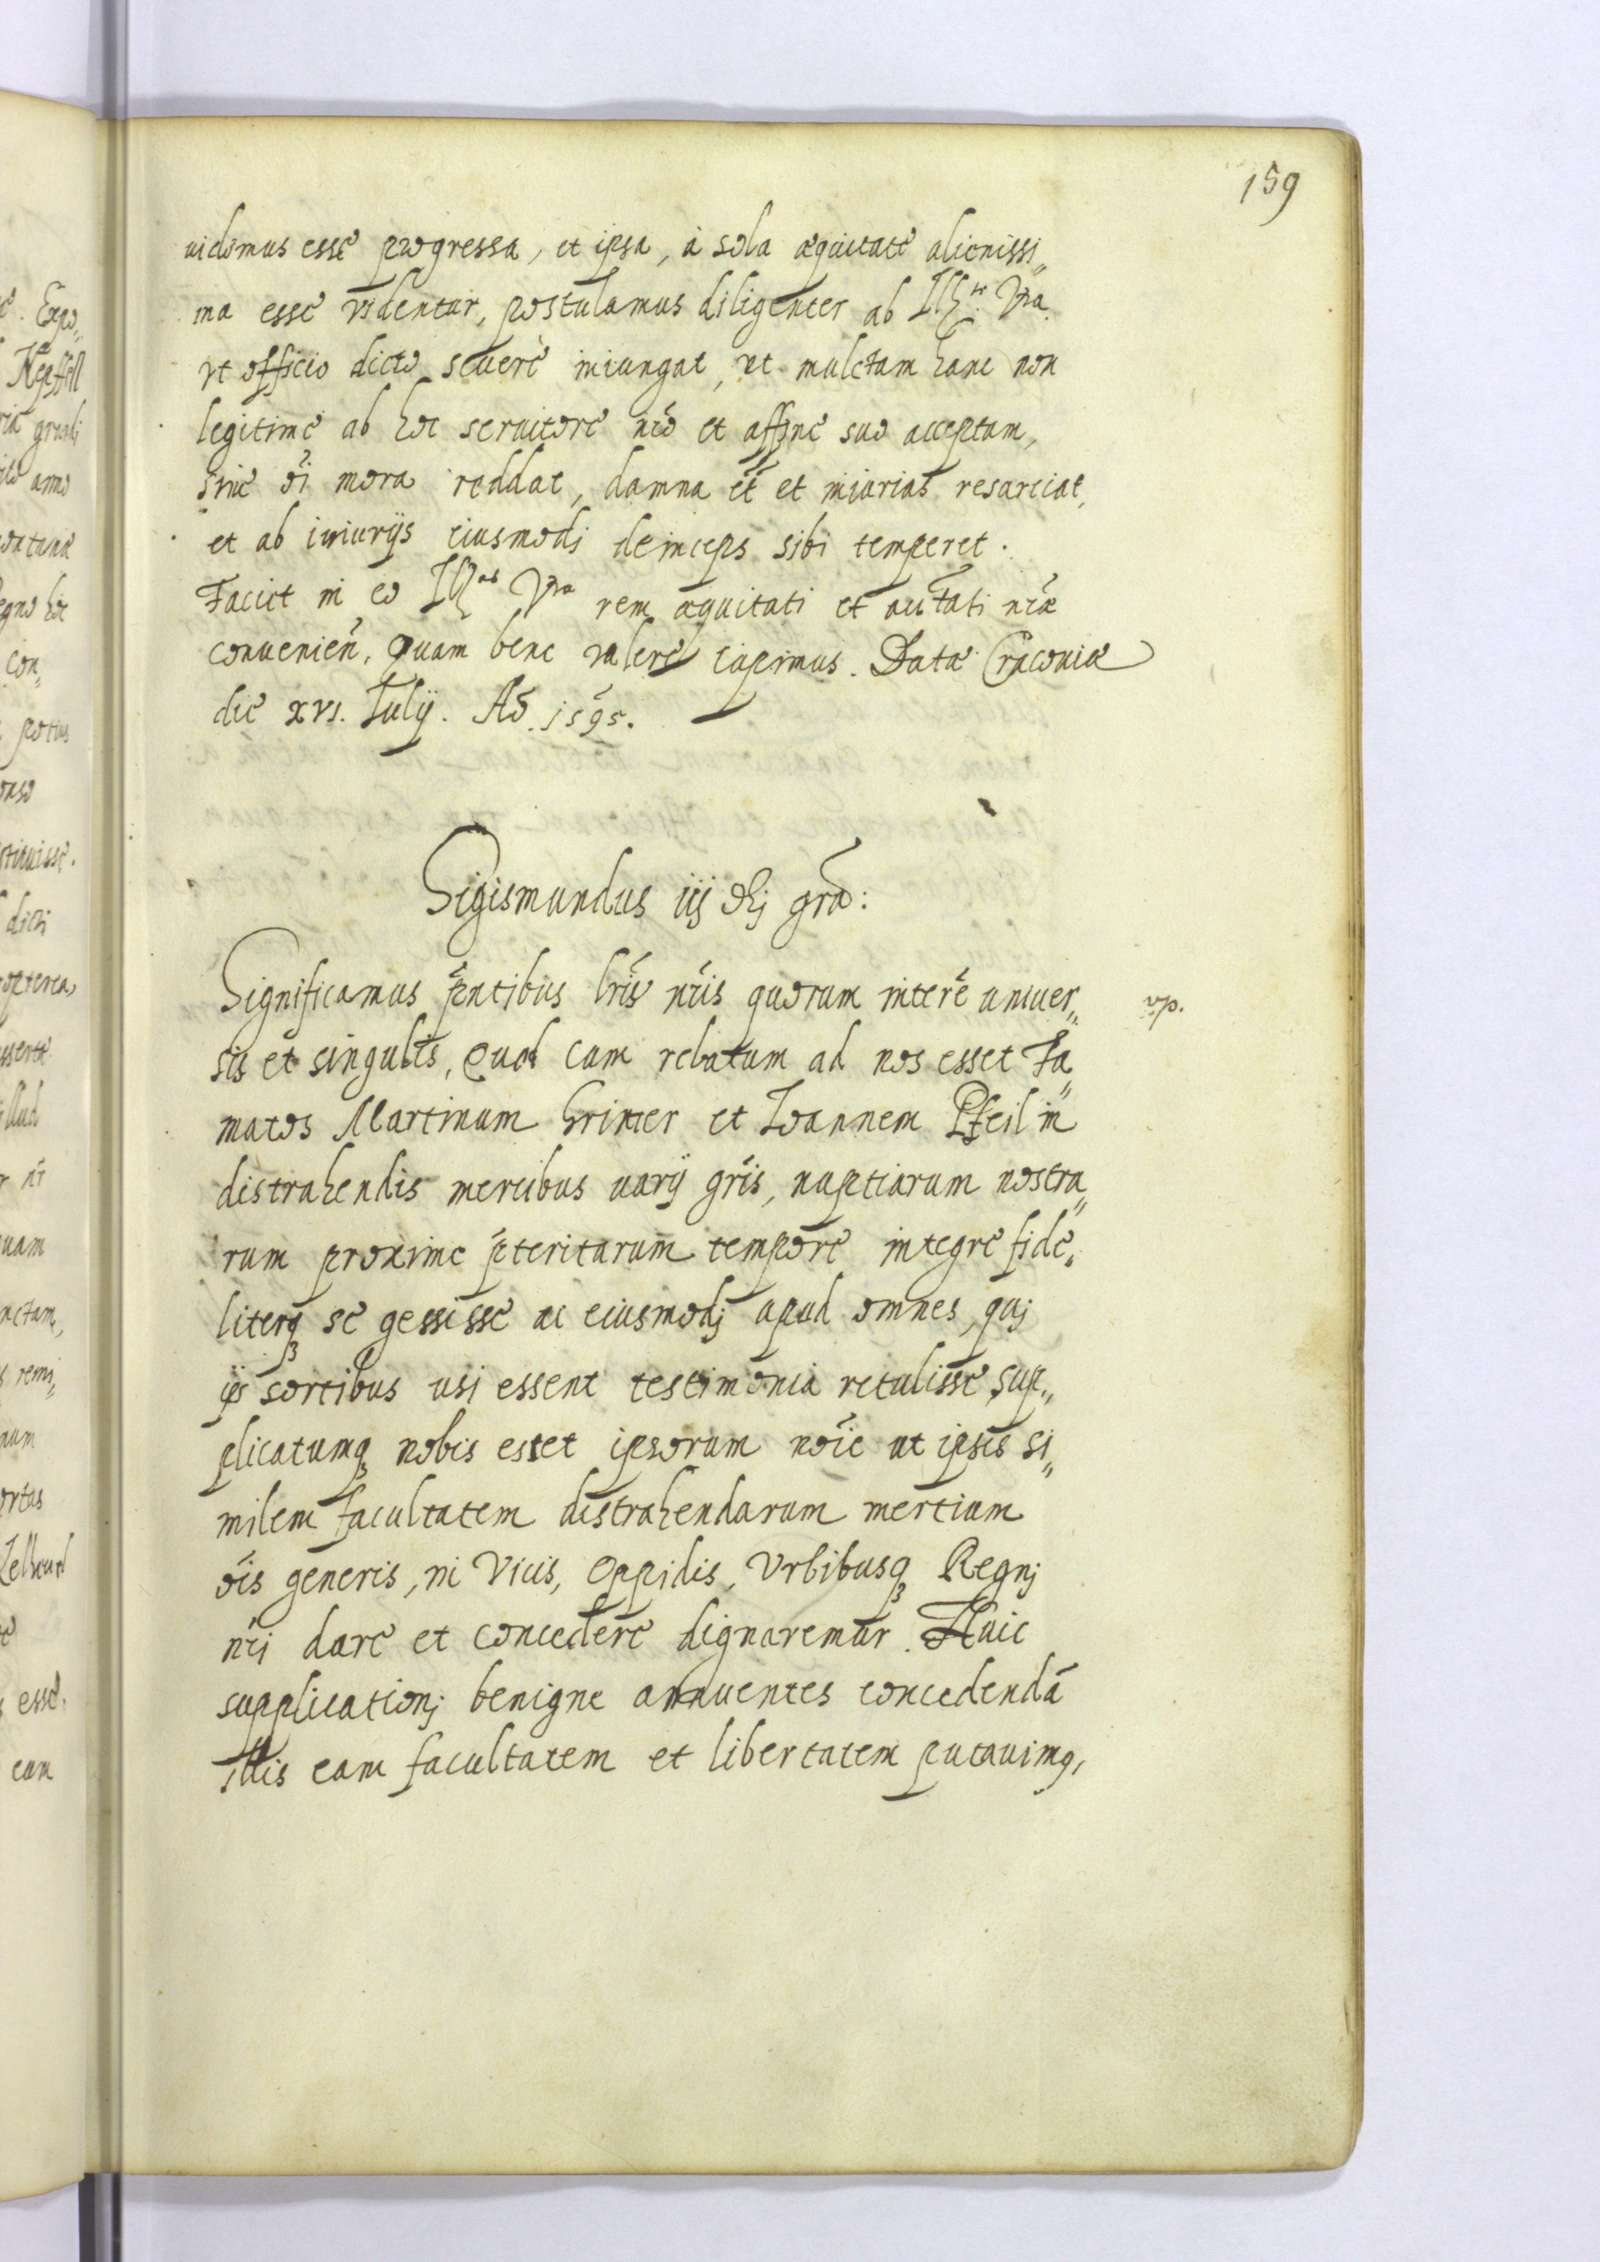 159
uidemus esse progressa, et ipsa, à sola æquitate alienissi„
ma esse videntur, postulamus diligenter ab Ill. tr Vra.
vt officio dicto seuerè iniungat, ut mulctam hanc non
legitime ab hoc seruitore nr̃o et affine suo acceptam,
sine oi mora reddat, damna et̃ et iniurias resarciat,
et ab iniurijs eiusmodj deinceps sibi temperet.
Faciet in eo Ill as Vra rem æquitati et auttati nr̃æ
conuenien̄, Quam bene valere cupimus. Data Cracouiæ
die xvi. Iulij. Aō. 1595.
Sigismundus iij dej gra͂:
Significamus p̃ntibus lr̃is nr̃is quorum interē uniuer„
sis et singulis, Quod cum relatum ad nos esset Fa„
matos Martinum Grimer et Ioannem Pfeil in
distrahendis mercibus uarij gr̃is, nuptiarum nostra„
rum proxime p̃teritarum tempore integre fide„
literq se gessisse ac eiusmodj apud omnes, quj
ijs sortibus usi essent testimonia retulisse sup„
plicatumq nobis esset ipsorum noīe ut ipsis si„
milem facultatem distrahendarum mertium
oīs generis, in Vicis, Oppidis, Vrbibusq Regnj
nr̃i dare et concedere dignaremur. Huic
supplicationj benigne annuentes concedendā
illis eam facultatem et libertatem putauimq,
vp.